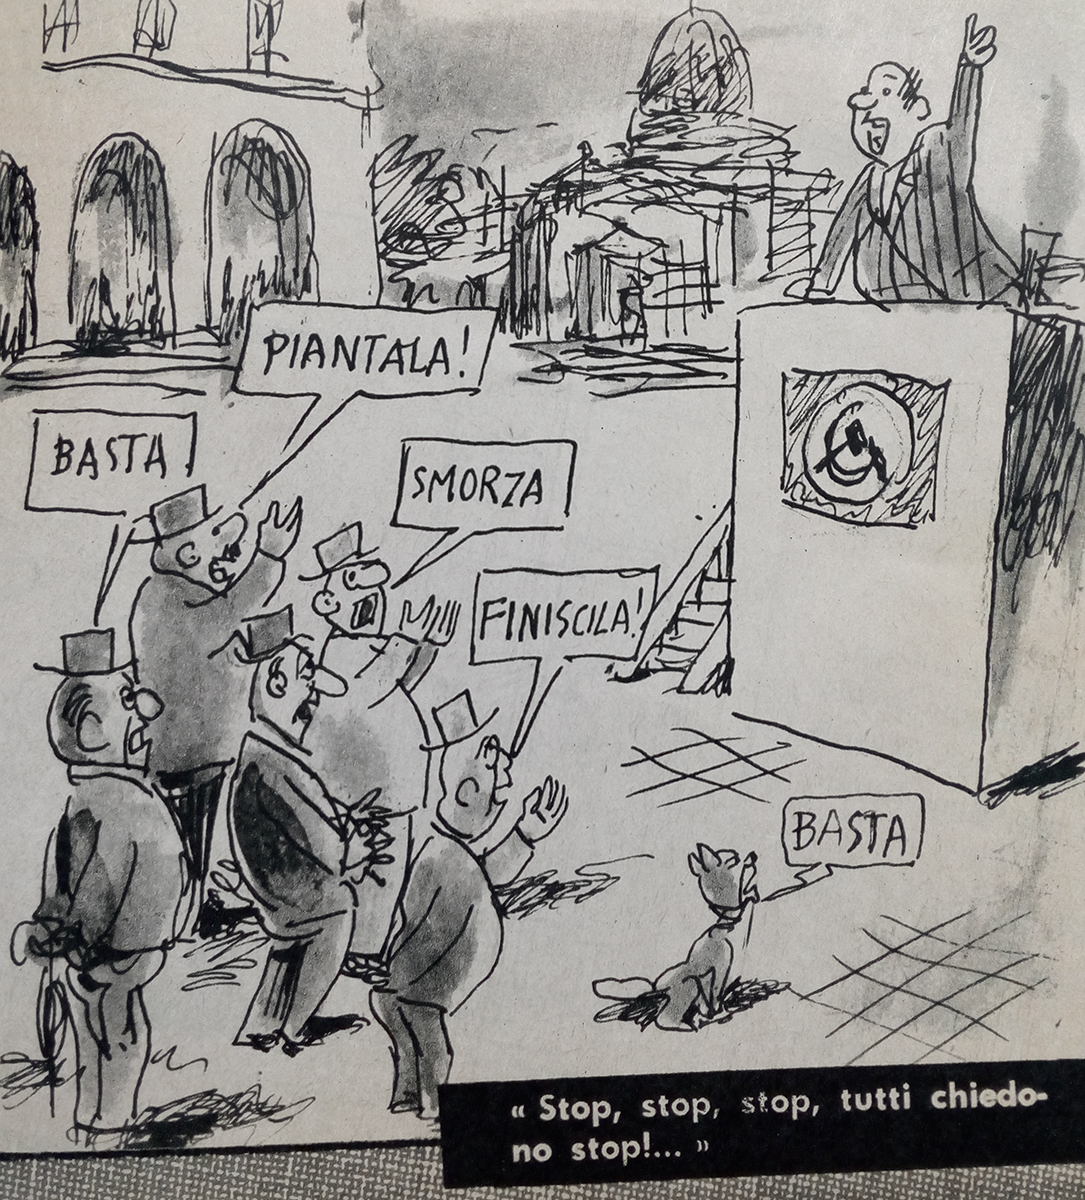 PIANTALA!
BASTA
SMORZA
FINISCILA!
BASTA
« Stop, stop, stop, tutti chiedo-
no stop!... »